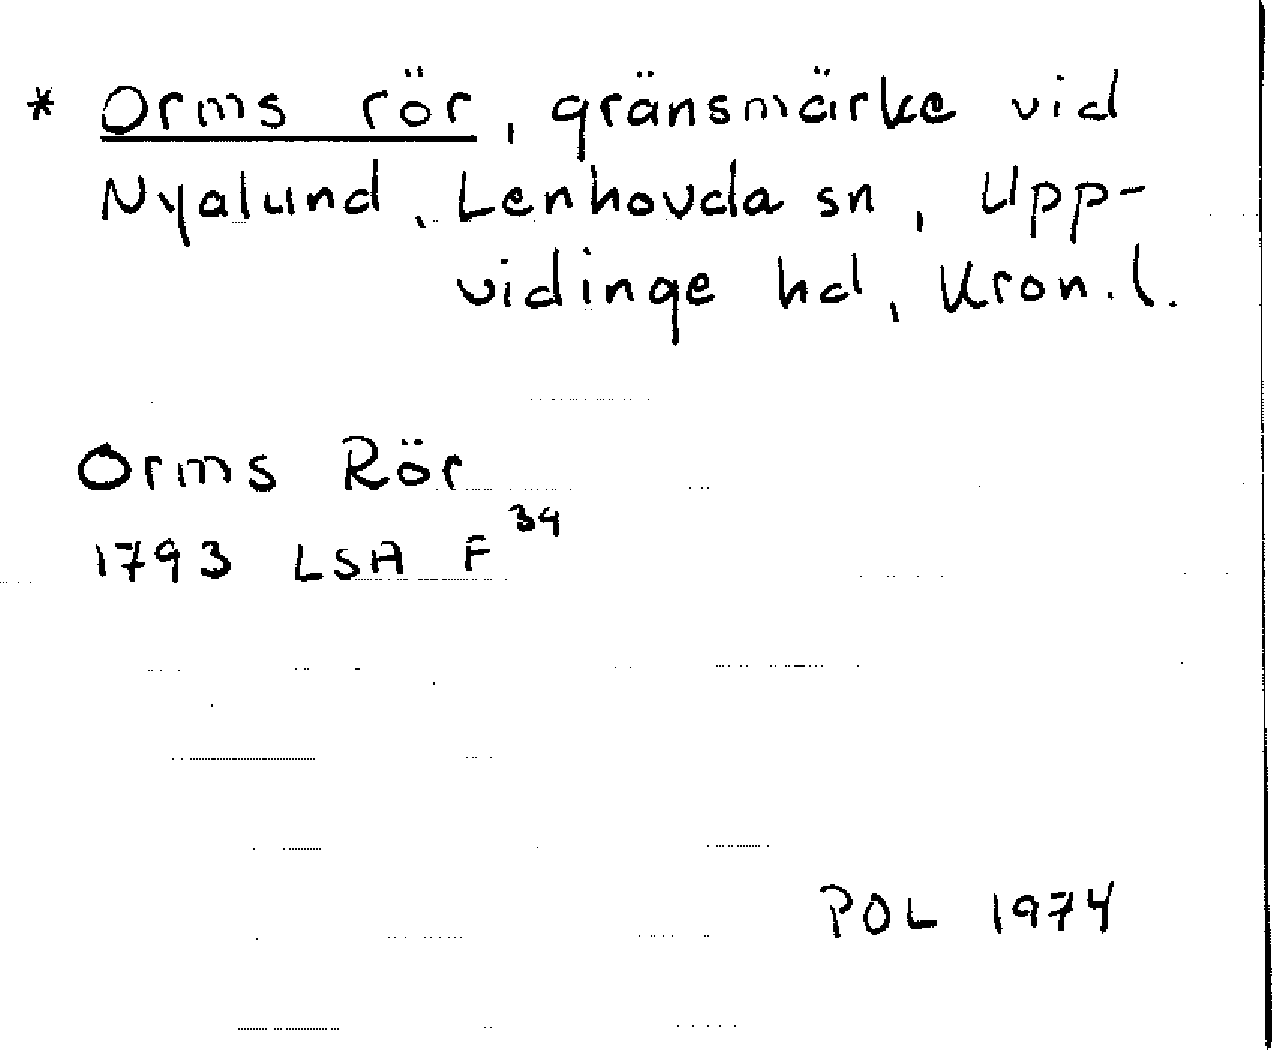 * Orms rör, gränsmärke vid
Nyalund, Lenhovda sn, Upp-
vidinge hd, Kron. l.
Orms Rör
1793 LSA F 34
POL 1974